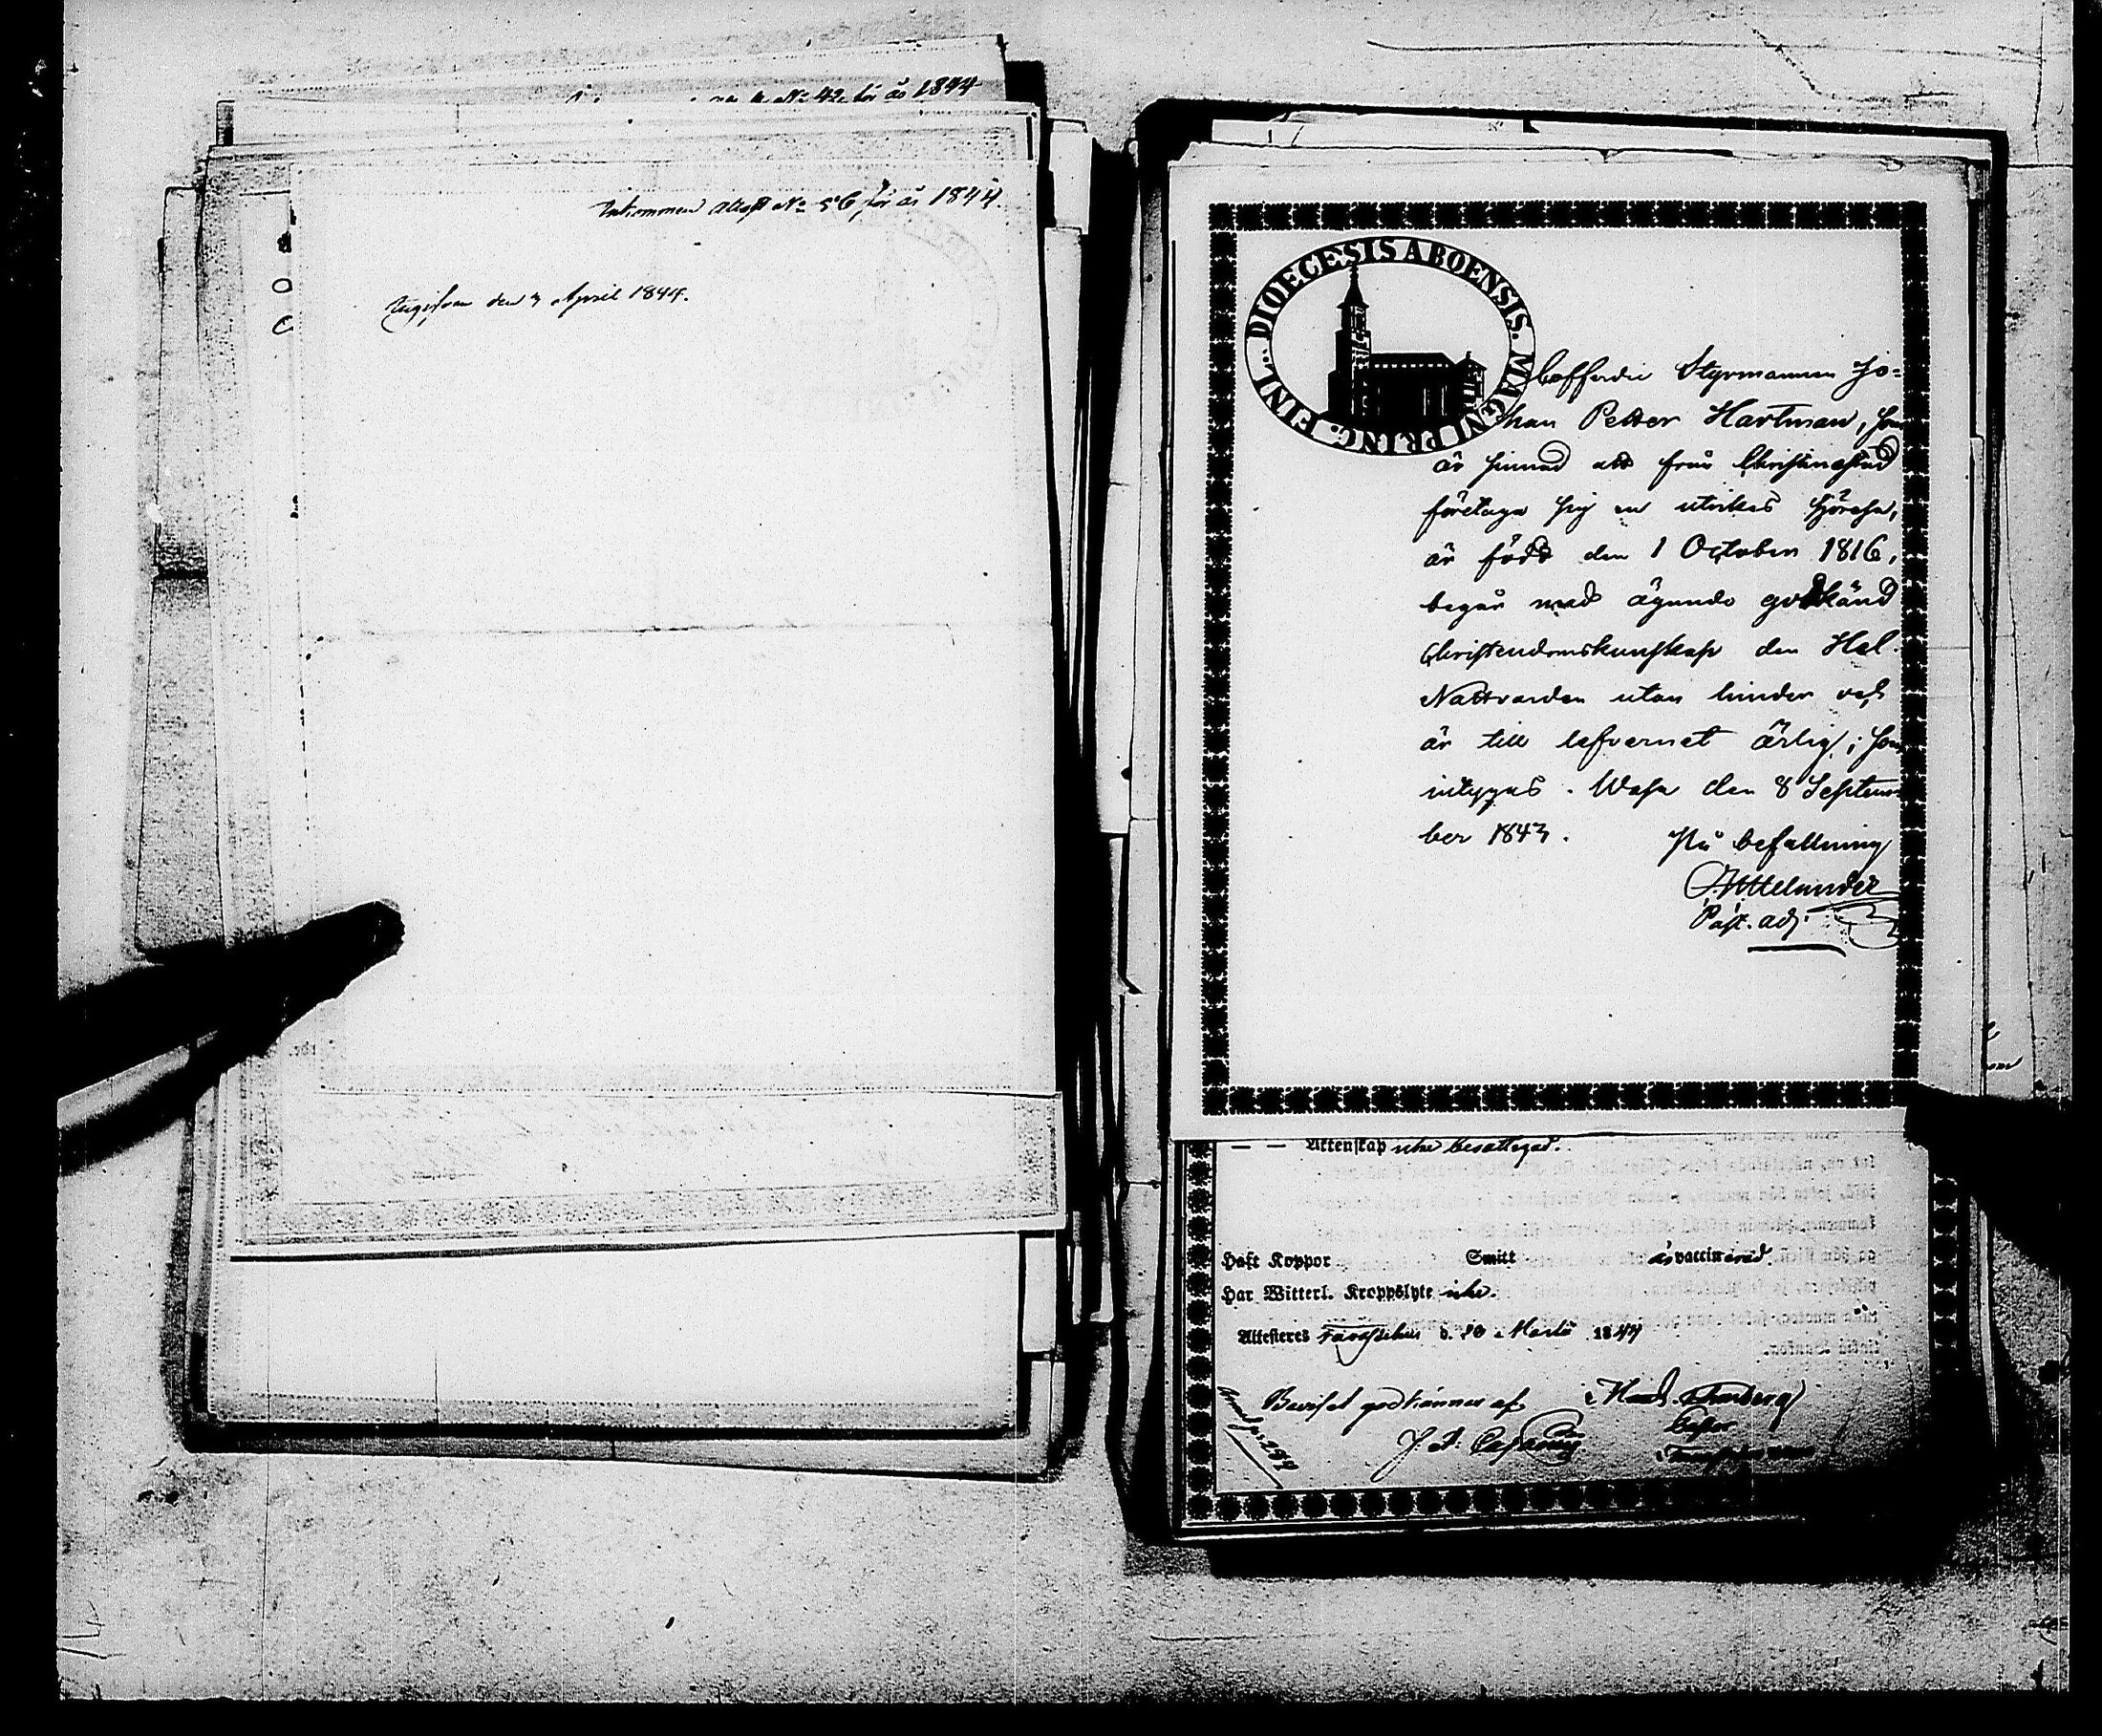 No 42, för år 1844
Inkommen attest No 56, för år 1844.
Utgifven den 3 April 1844.
DIOECESIS ABOENSIS. MAGNI PRINC. FINL.
Cofferdie Styrmannen Jo=
han Petter Hartman, som
är sinnad att från Christinæstad
företaga sig en utrikes sjöresa,
är född den 1 October 1816,
begår med ägande godkänd
Christendomskunskap den Hel.
Nattvarden utan hinder och
är till lefvernet ärlig; som
intygas. Wasa den 8 Septem
ber 1843.
På befallning
Past. adj.
— — Äktenskap icke besatt
Haft Koppor Smitt är vaccinerad.
Har Witterl. Kroppslyte icke.
Attesteres d. 10 Martii 1844
Beviset godkännes af
J. A.